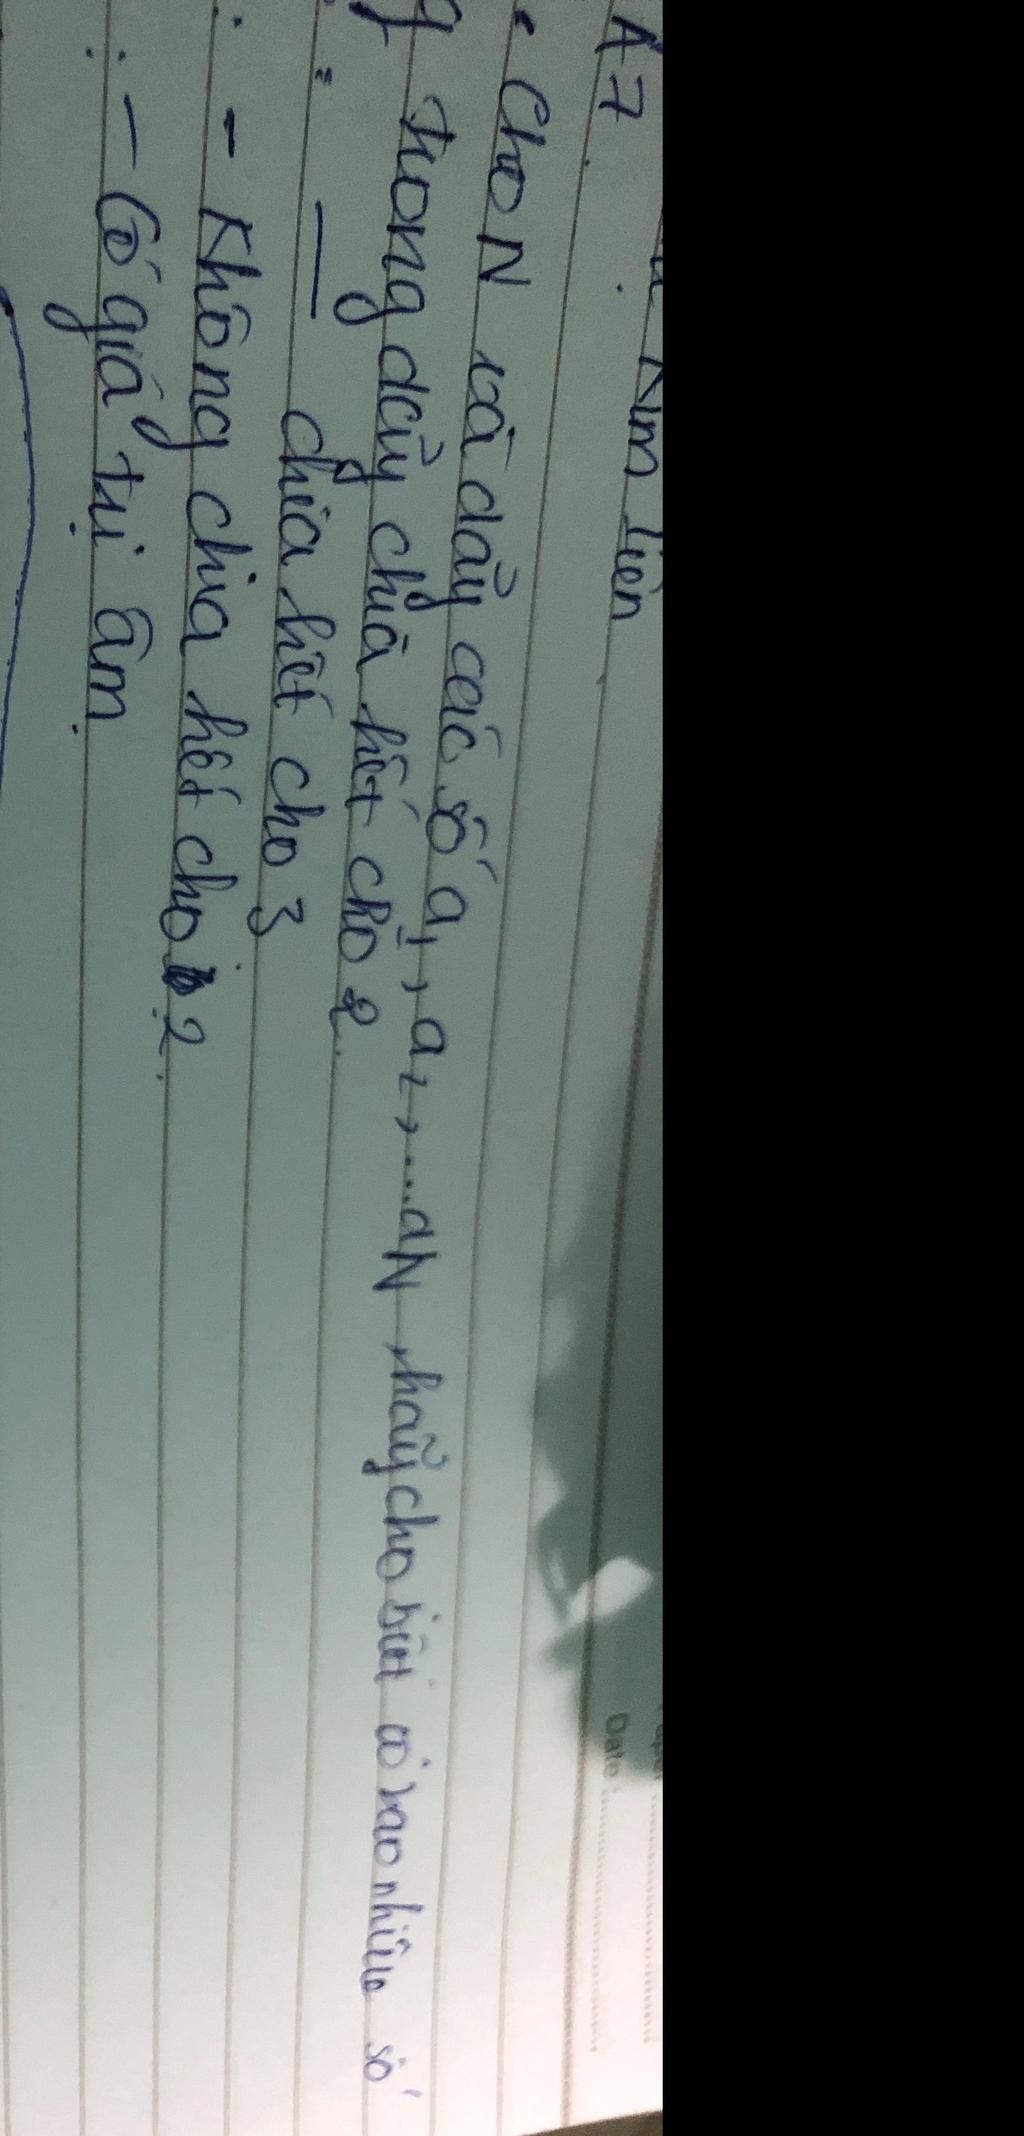 Kim Liên
A7
Date:
Cho N và dãy các số a1, a2, ... aN, hãy cho biết có bao nhiêu số
trong dãy chia hết cho 2.
— chia hết cho 3
- Không chia hết cho 2.
- Có giá trị âm